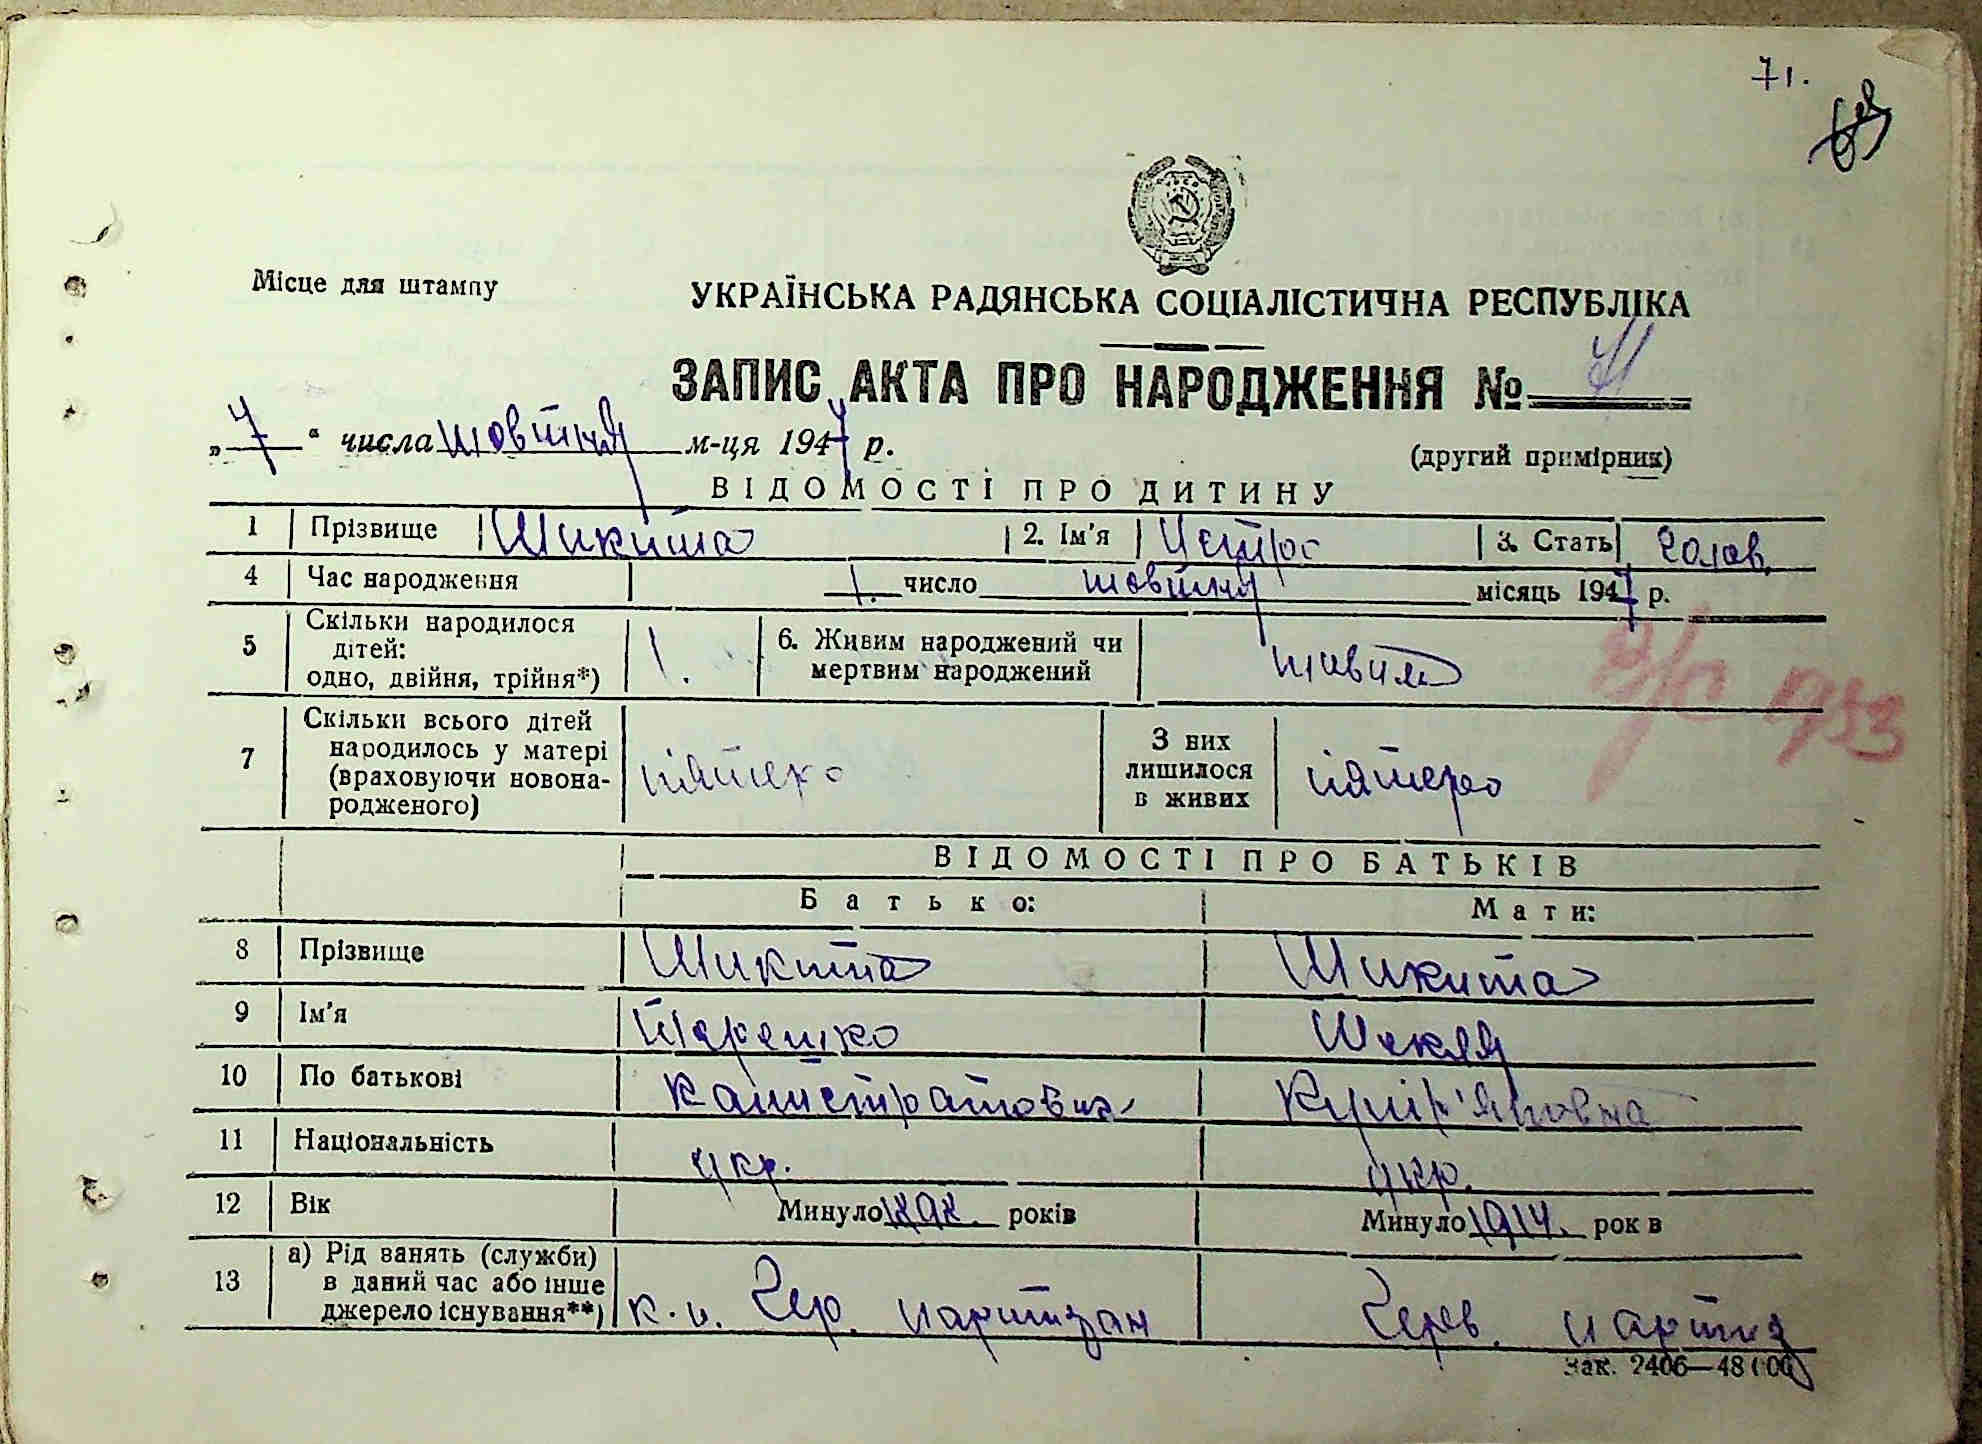 71.
69
Місце для штампу
УКРАЇНСЬКА РАДЯНСЬКА СОЦІАЛІСТИЧНА РЕСПУБЛІКА
ЗАПИС АКТА ПРО НАРОДЖЕННЯ № 71
„ 7 “ числа жовтня м-ця 1947 р.
(другий примірник)
ВІДОМОСТІ ПРО ДИТИНУ
1 Прізвище Шикита 2. Ім'я Петро 3. Стать чолов.
4 Час народження 1. число жовтня місяць 1947 р.
5 Скільки народилося дітей: одно, двійня, трійня*) 1. 6. Живим народжений чи мертвим народжений живим
7 Скільки всього дітей народилось у матері (враховуючи новонародженого) пятеро З них лишилося в живих пятеро
1953
ВІДОМОСТІ ПРО БАТЬКІВ
Батько: Мати:
8 Прізвище Шикита Шикита
9 Ім'я Терешко Текля
10 По батькові Капистратович Купір'яновна
11 Національність укр. укр.
12 Вік Минуло років Минуло 1914. рок в
13 а) Рід занять (служби) в даний час або інше джерело існування**) к-п. Чер. партизан Черв. партиз
Зак. 2406—48 000